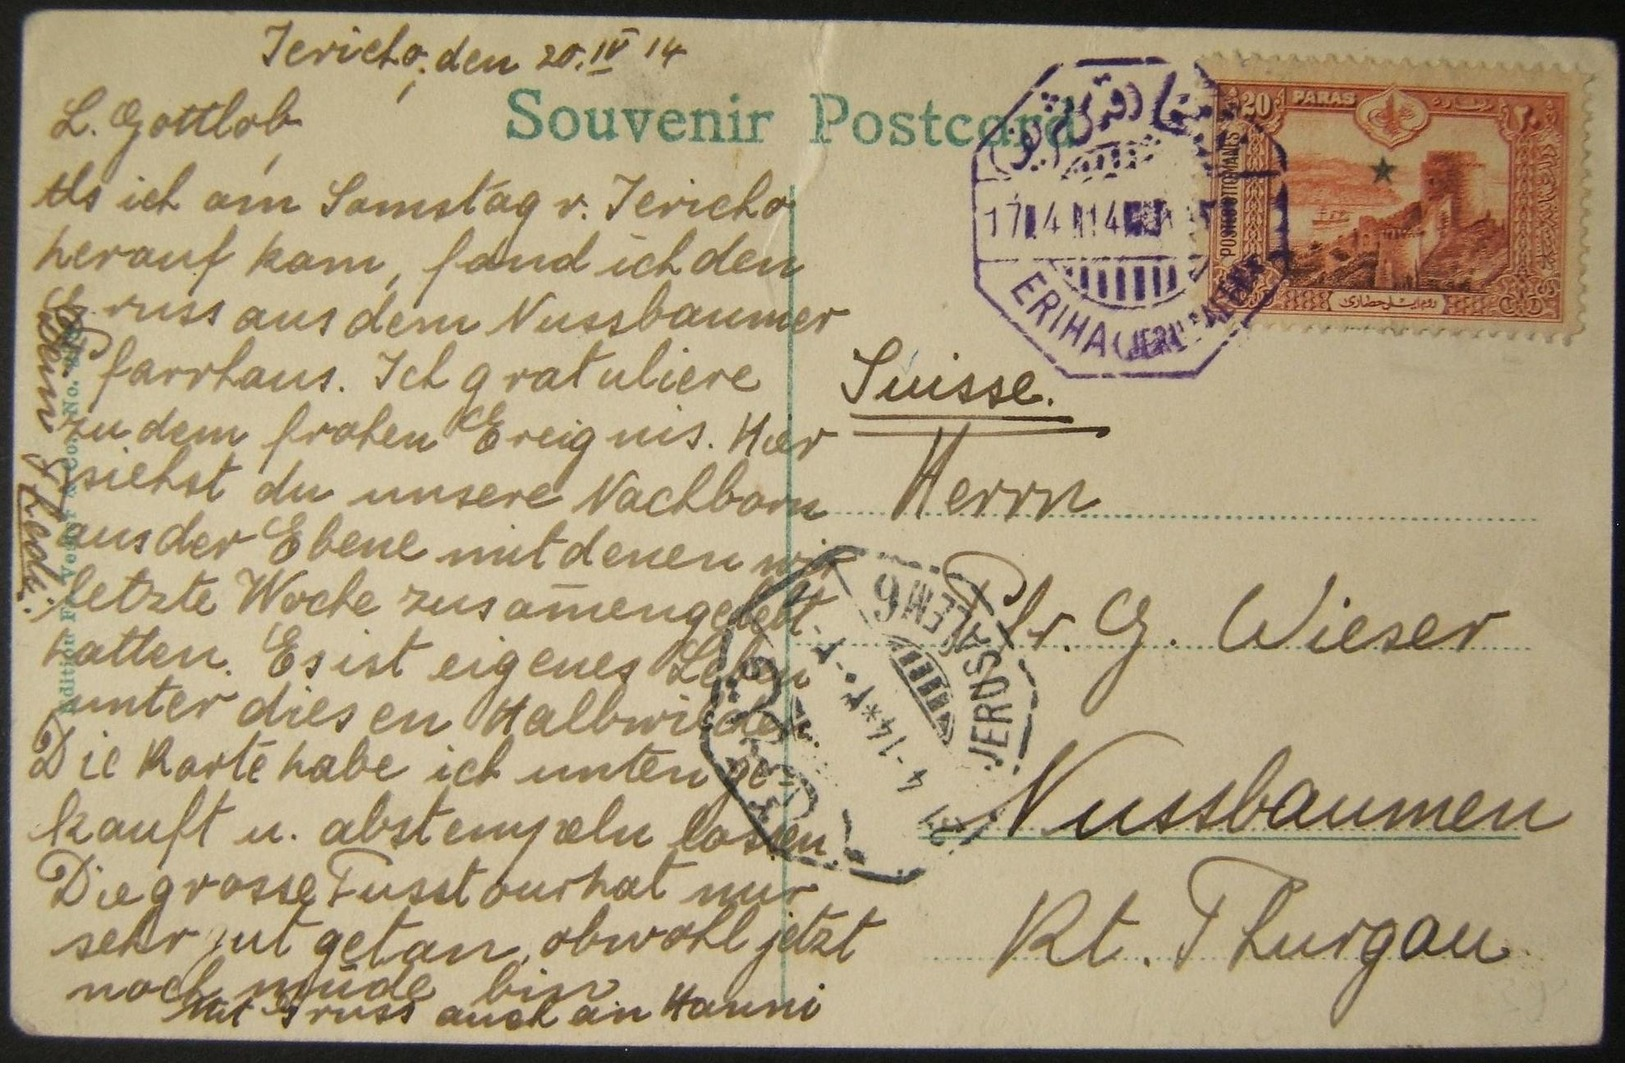 Jericho, den 20. IV 14
Souvenir Postcard
L. Gottlob
Als ich am Samstag v. Jericho
herauf kam, fand ich den
Gruss aus dem Nussbaumer
Pfarrhaus. Ich gratuliere
zu dem frohen Ereignis. Hier
siehst du unsere Nachbarn
aus der Ebene mit denen wir
letzte Woche zusam̄engelebt
hatten. Es ist eigenes Leben
unter diesen Halbwilden
Die Karte habe ich unten ge
kauft u. abstempeln lassen
Die grosse Fusstour hat mir
sehr gut getan, obwohl jetzt
noch müde bin
Mit Gruss auch an Hanni
Dein
Edition Fr. Vester & Co. No.
20 PARAS ٢٠
POSTES OTTOMANES
روم ايلى حصارى
17 4 14
ERIHA (JERUSALEM)
Suisse.
Herrn
Pfr. G. Wieser
Nussbaumen
Kt. Thurgau
JERUSALEM 6
4-14